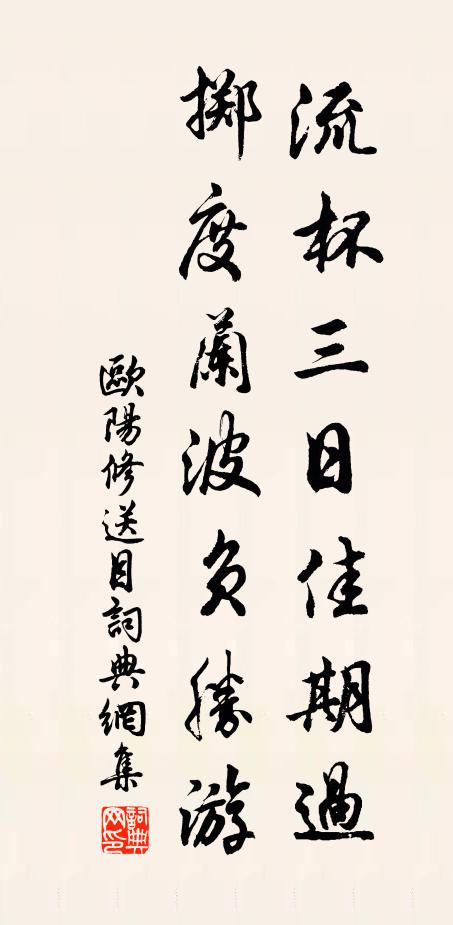 流杯三日佳期過
擲度蘭波負勝游
歐陽修送目詞典網集
詞典網印